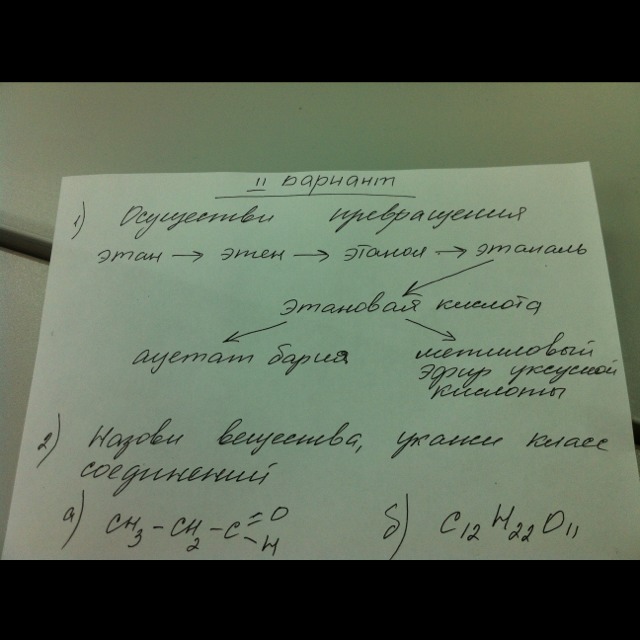 II вариант
1) Осуществи превращения
этан → этен → этанол → этаналь
этановая кислота
ацетат бария
метиловый
эфир уксусной
кислоты
2) Назови вещества, укажи класс
соединений
а) CH₃ – CH₂ – C = O – H
б) C₁₂H₂₂O₁₁